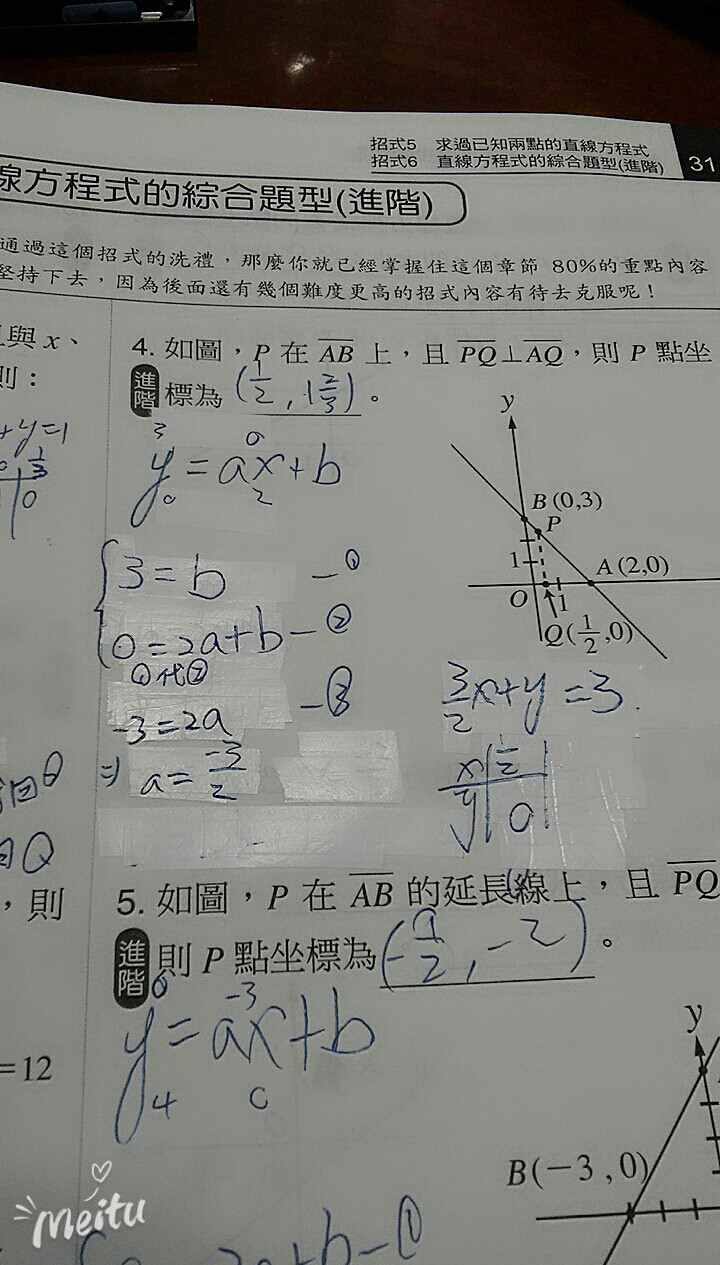 招式5 求過已知兩點的直線方程式
招式6 直線方程式的綜合題型(進階)
31
線方程式的綜合題型(進階)
通過這個招式的洗禮，那麼你就已經掌握住這個章節 80%的重點內容
堅持下去，因為後面還有幾個難度更高的招式內容有待去克服呢！
與 x、
則：
+y=1
0 1/3
0
，則
=12
4. 如圖，P 在 AB 上，且 PQ⊥AQ，則 P 點坐
進階 標為 (1/2, 1 2/3)。
3 0
y=ax+b
0 2
3=b —①
0=2a+b—②
①代②
-3=2a —③
⇒ a=-3/2
y
B(0,3)
P
1
A(2,0)
O
1
Q(1/2,0)
3/2x+y=3.
x 1/2
y
5. 如圖，P 在 AB 的延長線上，且 PQ
進階 則 P 點坐標為(-9/2, -2)。
0 -3
y=ax+b
4 0
y
B(-3,0)
Meitu